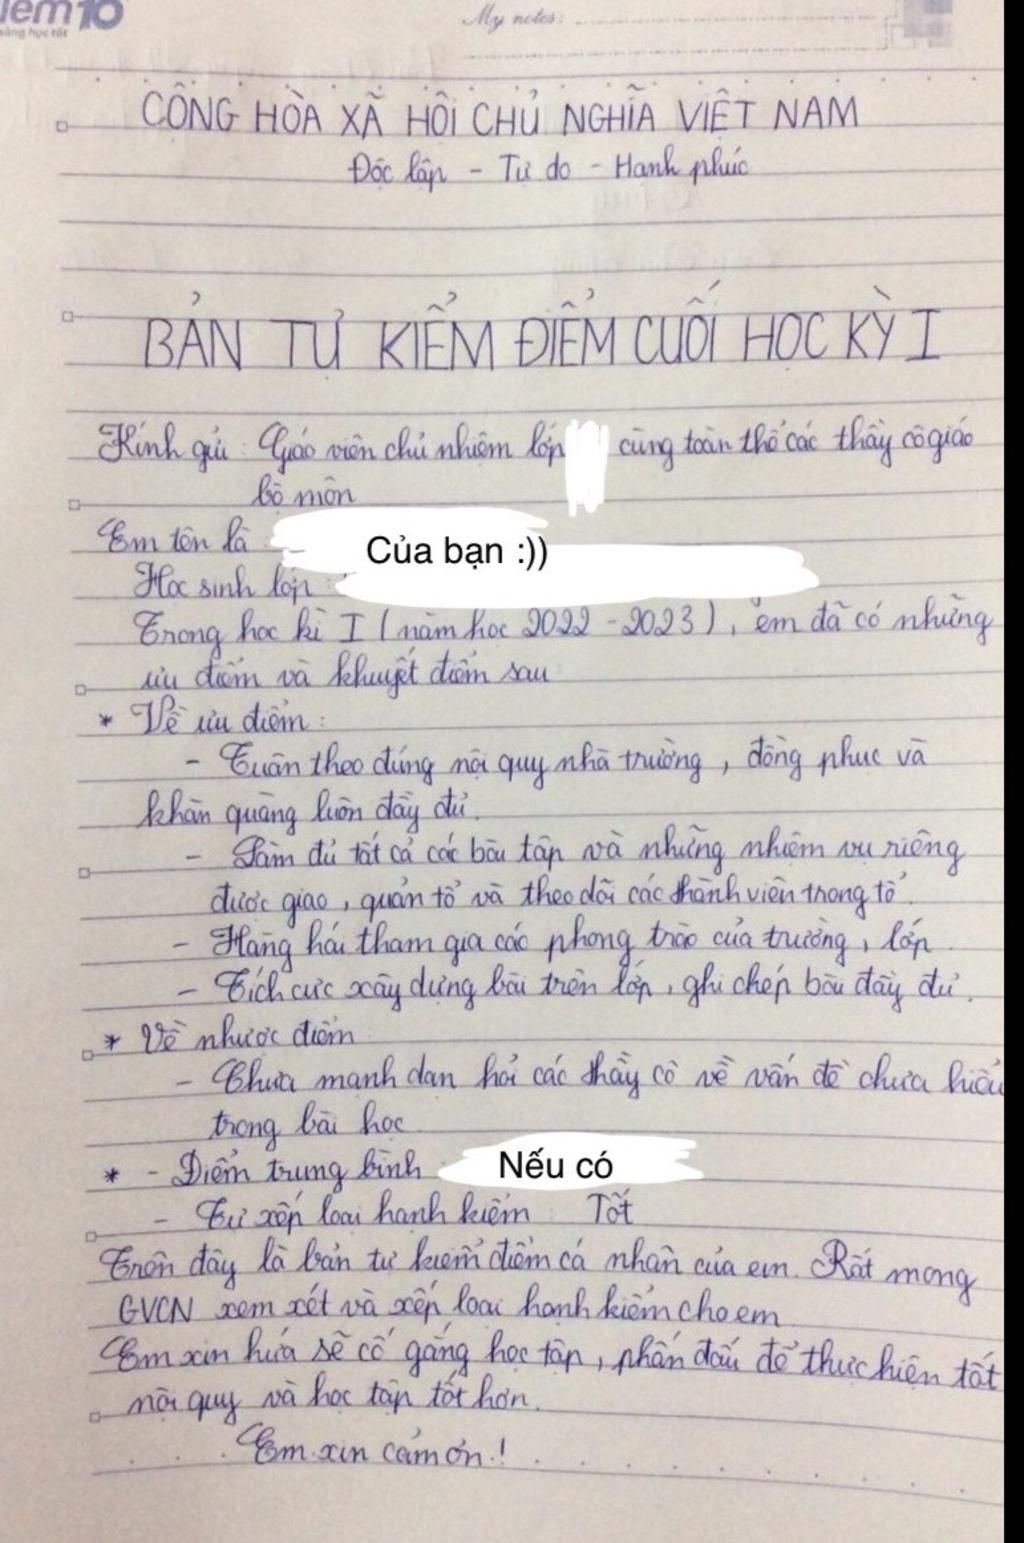 iem10
năng học tốt
My notes:
CỘNG HÒA XÃ HỘI CHỦ NGHĨA VIỆT NAM
Độc lập - Tự do - Hạnh phúc
BẢN TỰ KIỂM ĐIỂM CUỐI HỌC KỲ I
Kính gửi : Giáo viên chủ nhiệm lớp cùng toàn thể các thầy cô giáo
bộ môn
Em tên là : Của bạn :))
Học sinh lớp :
Trong học kì I (năm học 2022 - 2023), em đã có những
ưu điểm và khuyết điểm sau
* Về ưu điểm :
- Tuân theo đúng nội quy nhà trường, đồng phục và
khăn quàng luôn đầy đủ.
- Làm đủ tất cả các bài tập và những nhiệm vụ riêng
được giao, quản tổ và theo dõi các thành viên trong tổ.
- Hăng hái tham gia các phong trào của trường, lớp.
- Tích cực xây dựng bài trên lớp, ghi chép bài đầy đủ.
* Về nhược điểm
- Chưa mạnh dạn hỏi các thầy cô về vấn đề chưa hiểu
trong bài học
* - Điểm trung bình : Nếu có
- Tự xếp loại hạnh kiểm : Tốt
Trên đây là bản tự kiểm điểm cá nhân của em. Rất mong
GVCN xem xét và xếp loại hạnh kiểm cho em
Em xin hứa sẽ cố gắng học tập, phấn đấu để thực hiện tốt
nội quy và học tập tốt hơn.
Em xin cảm ơn.!